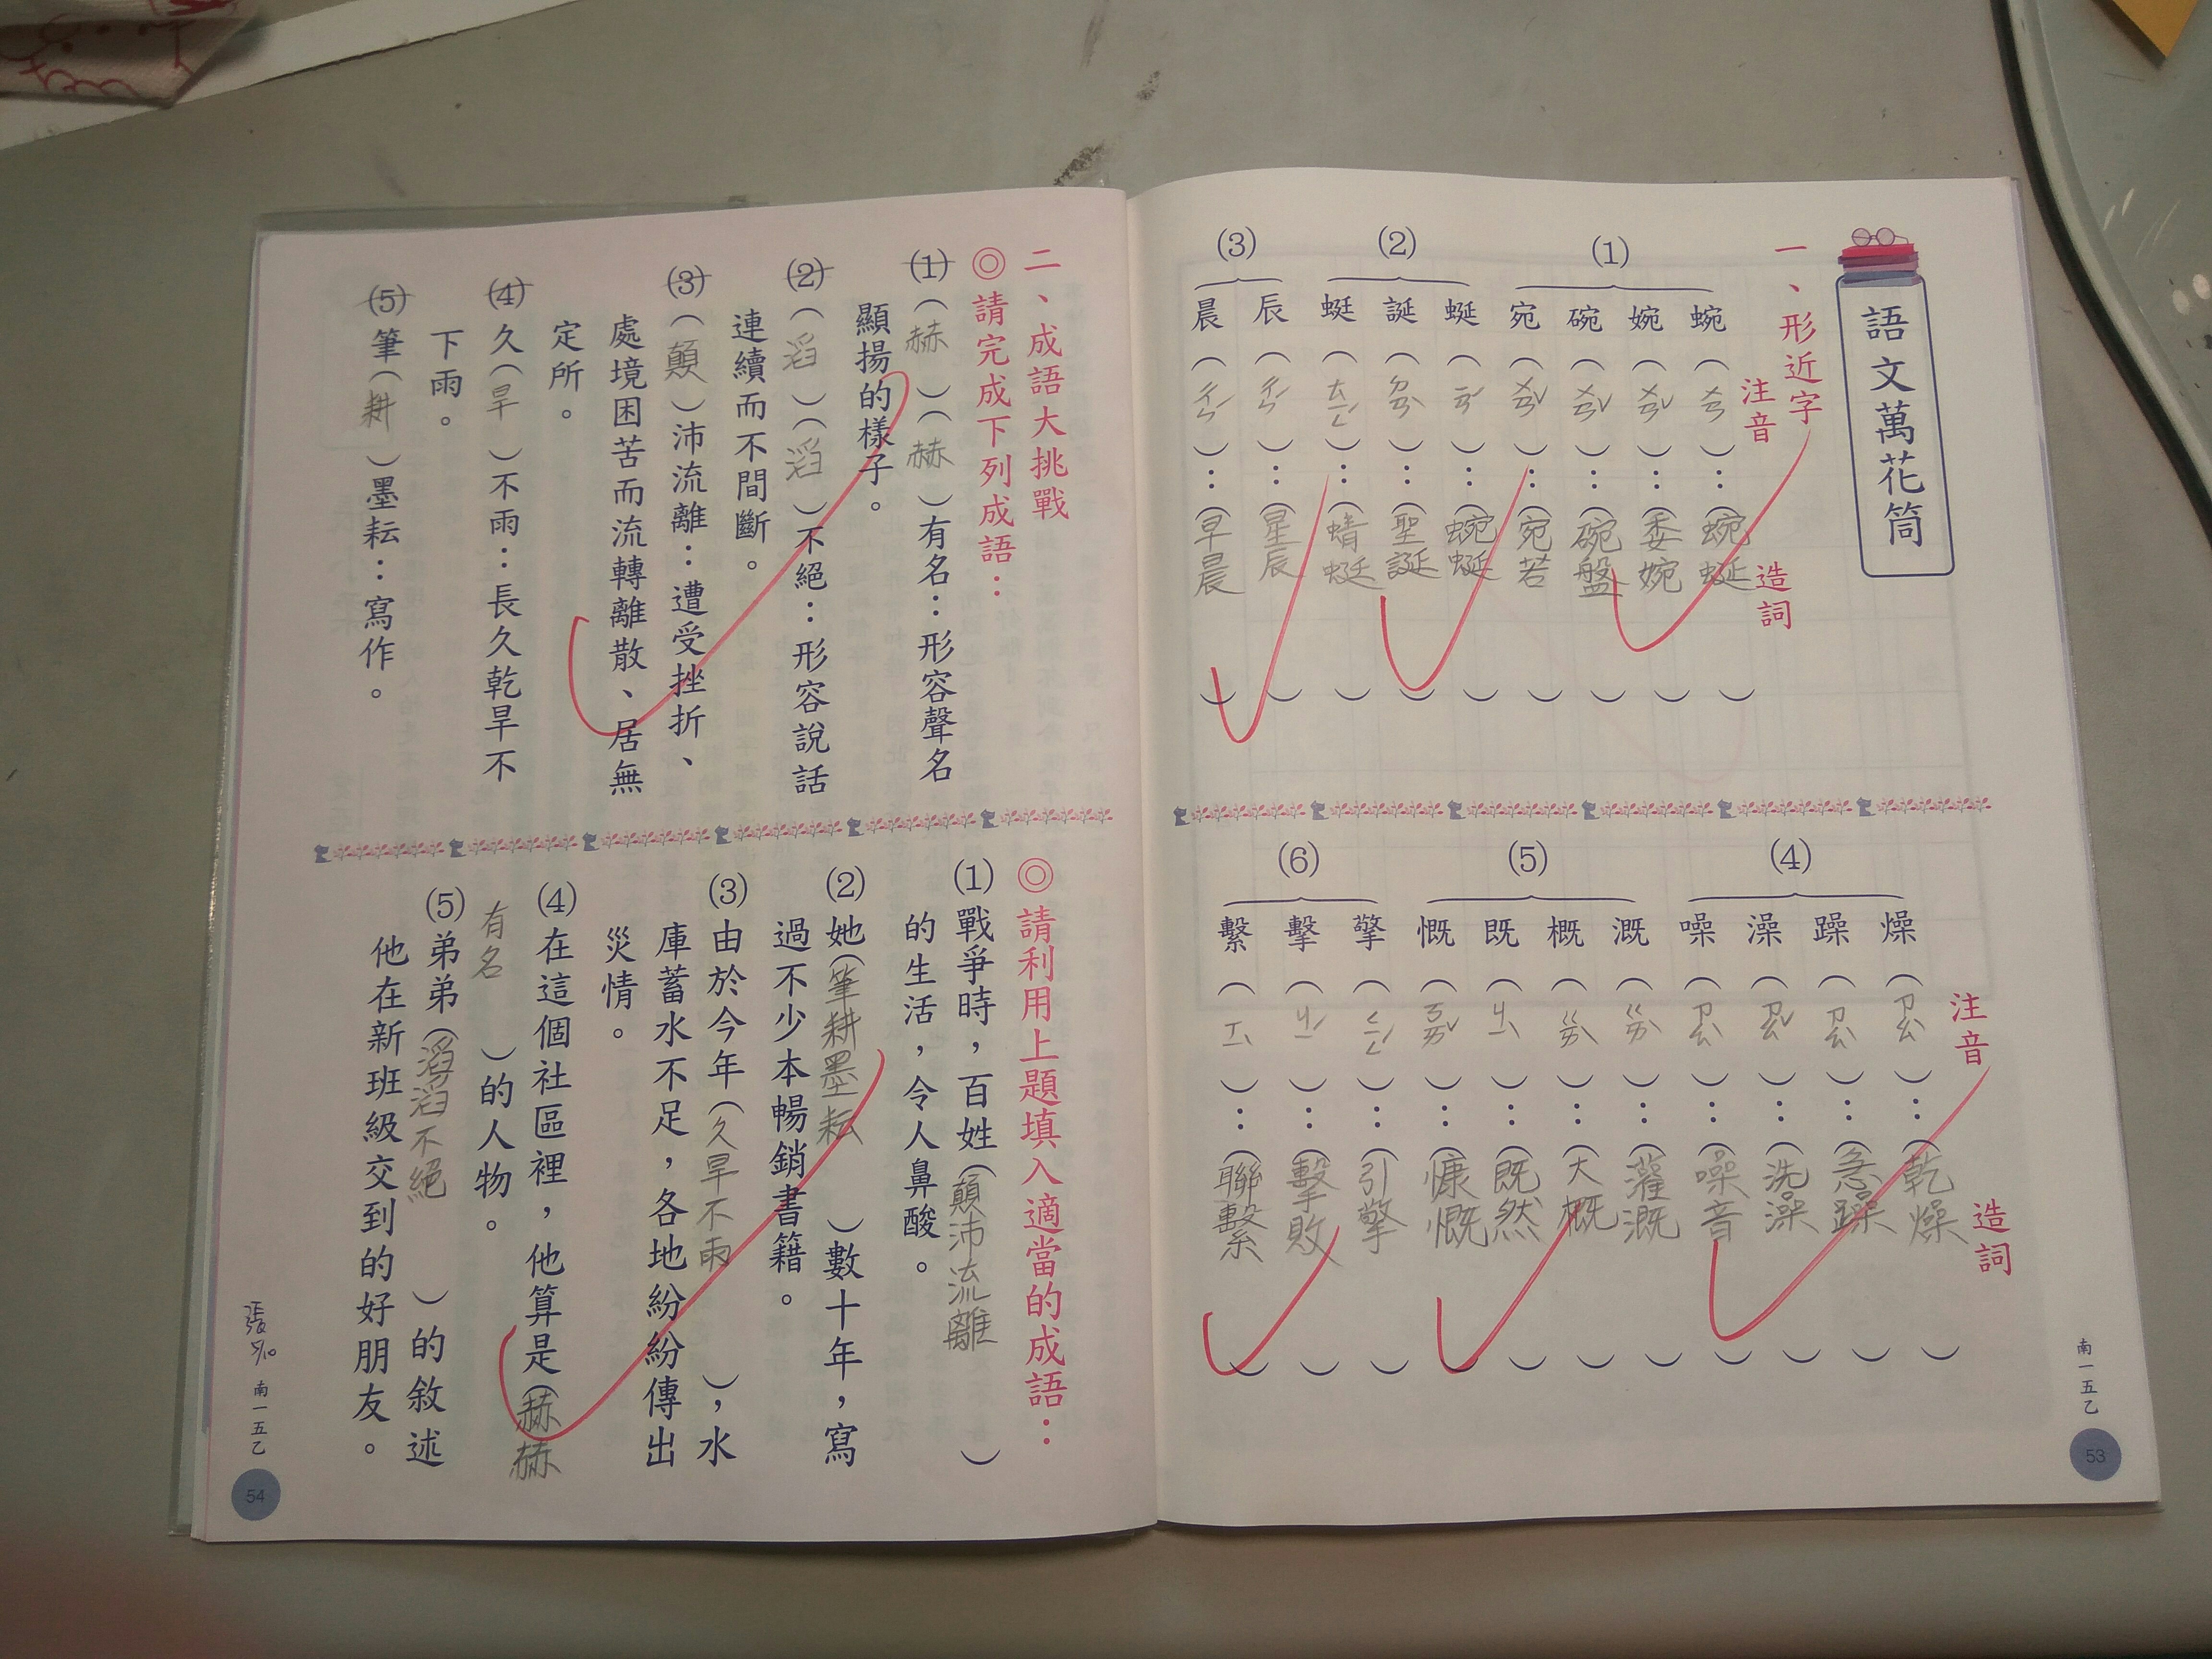 語文萬花筒
一、形近字
注音
造詞
(1)
蜿(ㄨㄢ):(蜿蜒)
婉(ㄨㄢˇ):(委婉)
碗(ㄨㄢˇ):(碗盤)
宛(ㄨㄢˇ):(宛若)
(2)
蜒(ㄧㄢˊ):(蜿蜒)
誕(ㄉㄢˋ):(聖誕)
蜓(ㄊㄧㄥˊ):(蜻蜓)
(3)
辰(ㄔㄣˊ):(星辰)
晨(ㄔㄣˊ):(早晨)
注音
造詞
(4)
燥(ㄗㄠˋ):(乾燥)
躁(ㄗㄠˋ):(急躁)
澡(ㄗㄠˇ):(洗澡)
噪(ㄗㄠˋ):(噪音)
(5)
溉(ㄍㄞˋ):(灌溉)
概(ㄍㄞˋ):(大概)
既(ㄐㄧˋ):(既然)
慨(ㄎㄞˇ):(慷慨)
(6)
擎(ㄑㄧㄥˊ):(引擎)
擊(ㄐㄧˊ):(擊敗)
繫(ㄒㄧˋ):(聯繫)
南一五乙
53
二、成語大挑戰
◎請完成下列成語:
(1)(赫)(赫)有名:形容聲名
顯揚的樣子。
(2)(滔)(滔)不絕:形容說話
連續而不間斷。
(3)(顛)沛流離:遭受挫折、
處境困苦而流轉離散、居無
定所。
(4)久(旱)不雨:長久乾旱不
下雨。
(5)筆(耕)墨耘:寫作。
◎請利用上題填入適當的成語:
(1)戰爭時,百姓(顛沛流離)
的生活,令人鼻酸。
(2)她(筆耕墨耘)數十年,寫
過不少本暢銷書籍。
(3)由於今年(久旱不雨),水
庫蓄水不足,各地紛紛傳出
災情。
(4)在這個社區裡,他算是(赫赫
有名)的人物。
(5)弟弟(滔滔不絕)的敘述
他在新班級交到的好朋友。
南一五乙
54